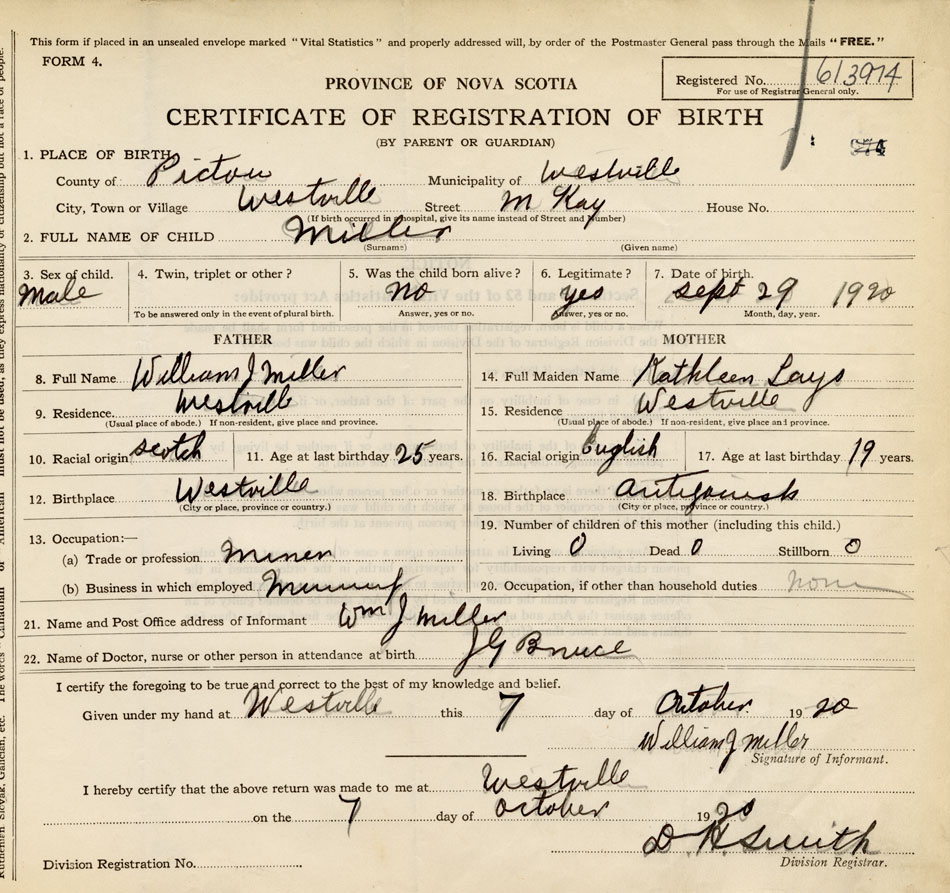 This form if placed in an unsealed envelope marked "Vital Statistics" and properly addressed will, by order of the Postmaster General pass through the Mails "FREE."
FORM 4.
PROVINCE OF NOVA SCOTIA
Registered No. 613974
For use of Registrar General only.
CERTIFICATE OF REGISTRATION OF BIRTH
(BY PARENT OR GUARDIAN)
1. PLACE OF BIRTH
County of Pictou Municipality of Westville
City, Town or Village Westville Street M Kay House No.
(If birth occurred in a hospital, give its name instead of Street and Number)
2. FULL NAME OF CHILD Miller
(Surname) (Given name)
3. Sex of child. 4. Twin, triplet or other? 5. Was the child born alive? 6. Legitimate? 7. Date of birth.
Male no yes sept 29 1920
To be answered only in the event of plural birth. Answer, yes or no. Answer, yes or no. Month, day, year.
FATHER MOTHER
8. Full Name William J Miller 14. Full Maiden Name Kathleen Lays
9. Residence. Westville 15. Residence Westville
(Usual place of abode.) If non-resident, give place and province. (Usual place of abode.) If non-resident, give place and province.
10. Racial origin scotch 11. Age at last birthday 25 years. 16. Racial origin English 17. Age at last birthday 19 years.
12. Birthplace Westville 18. Birthplace Antigonish
(City or place, province or country.) (City or place, province or country.)
13. Occupation:— 19. Number of children of this mother (including this child.)
(a) Trade or profession Miner Living 0 Dead 0 Stillborn 0
(b) Business in which employed 20. Occupation, if other than household duties none
21. Name and Post Office address of Informant Wm J Miller
22. Name of Doctor, nurse or other person in attendance at birth J G Bruce
I certify the foregoing to be true and correct to the best of my knowledge and belief.
Given under my hand at Westville this 7 day of October 1920
William J Miller
Signature of Informant.
I hereby certify that the above return was made to me at Westville
on the 7 day of October 1920
D H Smith
Division Registration No. Division Registrar.